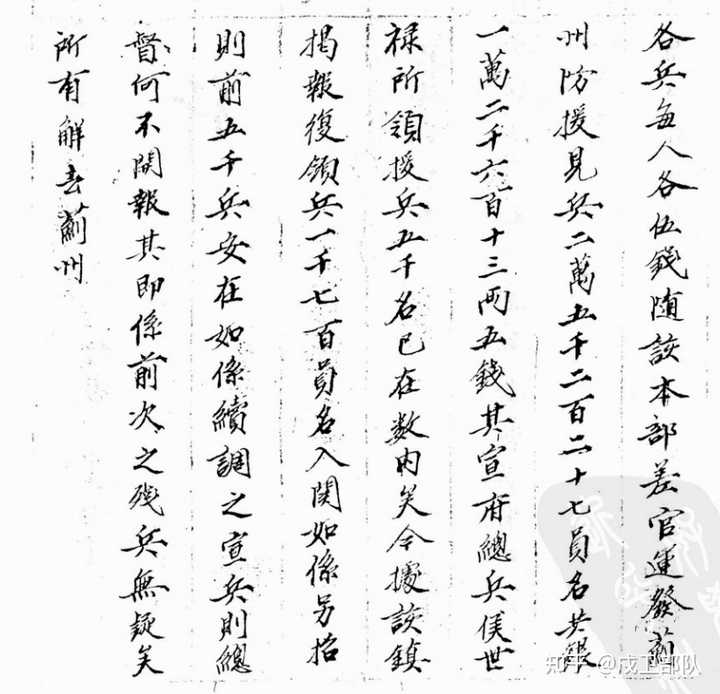 各兵每人各伍錢随該本部差官運發薊
州防援見兵二萬五千二百二十七員名共銀
一萬二千六百十三兩五錢其宣府總兵侯世
禄所領援兵五千名已在數内矣今據該鎮
揭報復領兵一千七百員名入関如係另招
則前五千兵安在如係續調之宣兵則總
督何不開報其即係前次之残兵無疑矣
所有解去薊州
知乎 @戍卫部队